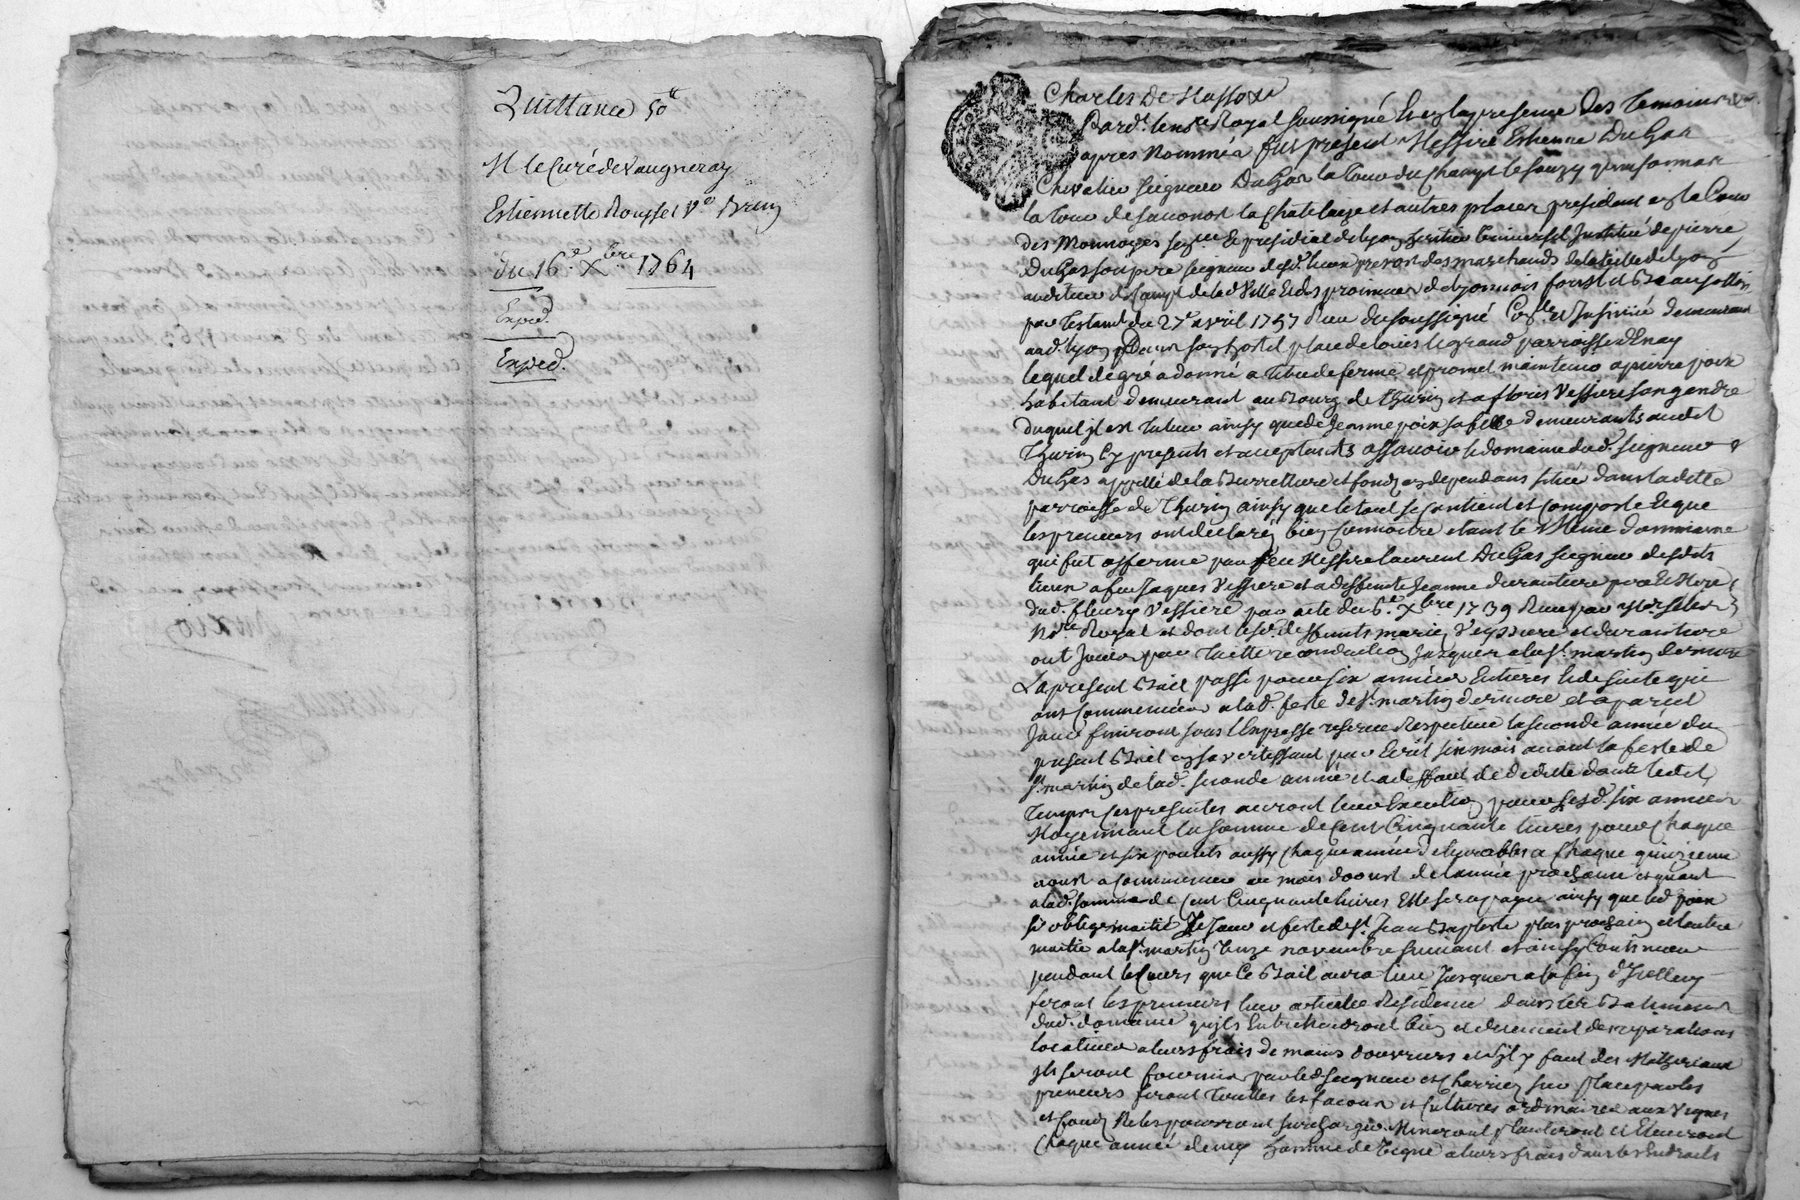 Quittance 50ᵗᵗ
M le Curé de Vaugneray
Estiennette Rousset Vᵉ Brun
du 16ᵉ Xbre 1764
Exped.
Exped.
Charles De
Pardᵗ Royal soussigné Et en la presence Des Temoins
apres Nommés fut present Messire Estienne DuGas
Chevalier seigneur DuGas la Tour du Champt le souzy
la Tour de savonost la Chatelaize et autres places president en la Cour
Des Monnoyes senᶜᵉᵉ Et presidial de Lyon heritier universel Institué de pierre
DuGas son pere seigneur desdᵗ lieux prevost des marchands de la ville de Lyon
de lad Ville Et des provinces de Lyonnois forest et Beaujollois
par Testamᵗ du 27ᵉ avril 1757 du soussigné Conᵗˡᵉ et Insinué demeurant
aud. Lyon Dans son hostel place de Louis le grand parroisse D'Enay
lequel de gré a donné a titre de ferme et promet maintenir a pierre poix
habitant demeurant au Bourg de Thurin et a floris Vessiere son gendre
duquel il est Tuteur ainsy que de Jeanne poix sa fille demeurants audit
Thurin Cy presents et acceptants assavoir le domaine dud. seigneur
DuGas appellé de la Burretiere et fonds en dependans situé dans laditte
parroisse de Thurin ainsy que le tout se contient et Comporte et que
les preneurs ont declaré bien Connoitre etant le Meme domaine
qui fut affermé par feu Messire Laurent DuGas seigneur desdits
lieux a feu Jaques Vessiere et a deffunte Jeanne durantiere pere Et Mere
dud. fleury Vessiere par acte du 6ᵉ Xbre 1739 Receu par
Noʳᵉ Royal et dont lesd. deffunts mariés Veyssiere et durantiere
ont Joui par Tacitte reconduction Jusques a la Sᵗ martin derniere
La present Bail passé pour six années Entieres Et de suitte qui
ont Commencées a lad. feste de Sᵗ martin derniere et a pareil
Jour finiront sous l'Expresse reserve Respective la seconde année du
present Bail en s'avertissant par Ecrit six mois avant la feste de
Sᵗ martin de lad. seconde année et a deffaut de deditte dans ledit
Temps ces presentes auront leur Execution pour lesd. six années
Moyennant la somme de Cent Cinquante livres pour Chaque
année et six poulets aussy Chaque année delivrables a Chaque quinzieme
aoust a Commencer au mois d'aoust de l'année prochaine et quant
a lad. somme de Cent Cinquante livres Elle sera payée ainsy que led poix
s'oblige moitié Jour et feste de Sᵗ Jean Baptiste plus prochain et l'autre
moitié a la Sᵗ martin Onze novembre suivant et ainsy Continuer
pendant le Cours que Ce Bail aura lieu Jusques a la fin d'Icelluy
feront les preneurs leur actuelle Residence dans les Batiments
dud. domaine qu'ils Entretiendront bien et duement de reparations
locatives a leurs frais de mains d'ouvriers et s'il y faut des Matheriaux
Ils seront fournis par led. seigneur et Charriés sur place par les
preneurs feront touttes les facons et Cultures ordinaires aux Vignes
et fonds Ne les pourront surcharger Mineront planteront Et Eleveront
Chaque année demy homme de Vigne a leurs frais dans les Endroits